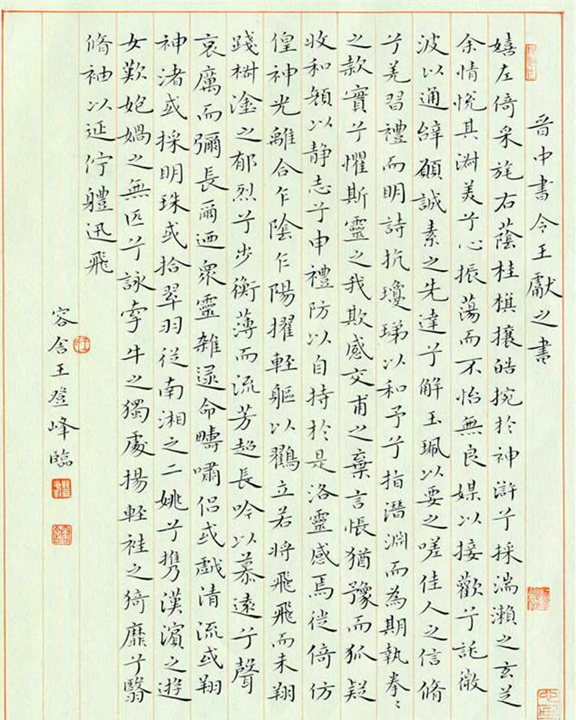 晉中書令王獻之書
嬉左倚采旄右蔭桂棋攘皓捥於神滸兮採湍瀨之玄芝
余情悅其淵美兮心振蕩而不怡無良媒以接歡兮託微
波以通辭願誠素之先達兮解玉珮以要之嗟佳人之信脩
兮羌習禮而明詩抗瓊珶以和予兮指潛淵而為期執拳〻
之款實兮懼斯靈之我欺感交甫之棄言悵猶豫而狐疑
收和顏以静志兮申禮防以自持於是洛靈感焉徙倚仿
偟神光離合乍陰乍陽擢輕軀以鸖立若將飛飛而未翔
踐椒塗之郁烈兮步衡薄而流芳超長吟以慕遠兮聲
哀厲而彌長爾迺衆靈雜遝命疇嘯侶或戲清流或翔
神渚或採明珠或拾翠羽從南湘之二姚兮携漢濱之遊
女歎媧之無匹兮詠牽牛之獨處揚輕袿之猗靡兮翳
脩袖以延佇軆迅飛
容舍王登峰臨